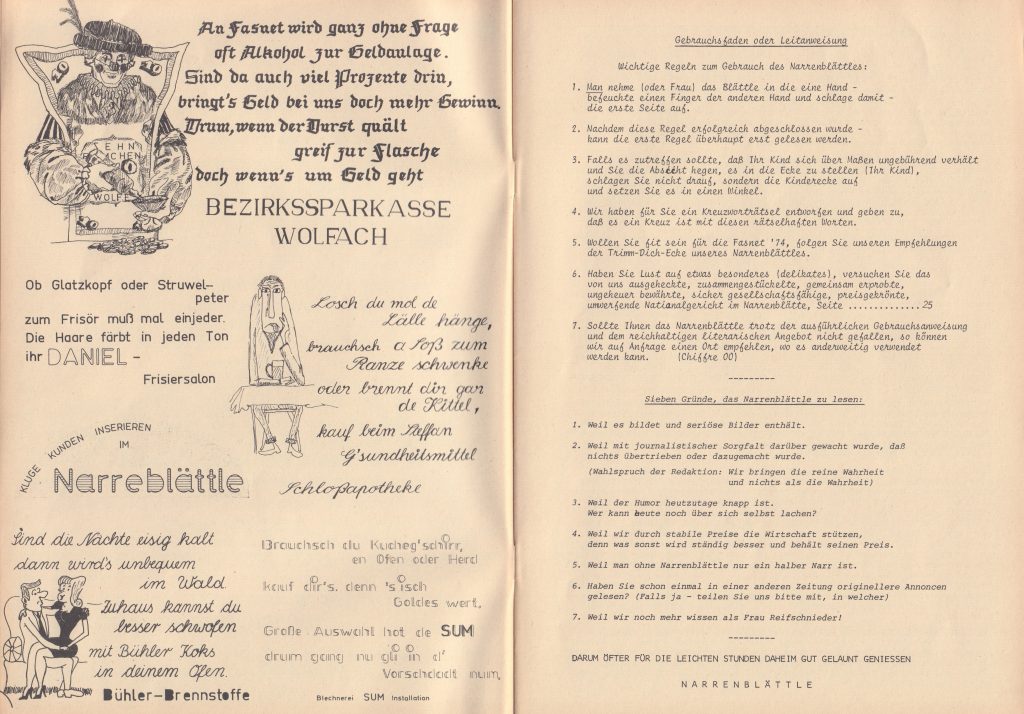 An Fasnet wird ganz ohne Frage
oft Alkohol zur Geldanlage.
Sind da auch viel Prozente drin,
bringt's Geld bei uns doch mehr Gewinn.
Drum, wenn der Durst quält
greif zur Flasche
doch wenn's um Geld geht
BEZIRKSSPARKASSE
WOLFACH
20
20
ZEHN
WOLFE
20
Ob Glatzkopf oder Struwel-
peter
zum Frisör muß mal einjeder.
Die Haare färbt in jeden Ton
ihr DANIEL -
Frisiersalon
Losch du mol de
Lälle hänge,
brauchsch a Soß zum
Ranze schwenke
oder brennt dir gar
de Kittel,
kauf beim Steffan
G'sundheitsmittel
Schloßapotheke
KLUGE KUNDEN INSERIEREN
IM
Narreblättle
Sind die Nächte eisig kalt
dann wird's unbequem
im Wald.
Zuhaus kannst du
besser schwofen
mit Bühler Koks
in deinem Ofen.
Bühler-Brennstoffe
Brauchsch du Kucheg'schirr,
en Ofen oder Herd
kauf dir's, denn 's isch
Goldes wert.
Große Auswahl hot de SUM
drum gang nu glii in d'
Vorschdadt num.
Blechnerei SUM Installation
Gebrauchsfaden oder Leitanweisung
Wichtige Regeln zum Gebrauch des Narrenblättles:
1. Man nehme (oder Frau) das Blättle in die eine Hand -
befeuchte einen Finger der anderen Hand und schlage damit -
die erste Seite auf.
2. Nachdem diese Regel erfolgreich abgeschlossen wurde -
kann die erste Regel überhaupt erst gelesen werden.
3. Falls es zutreffen sollte, daß Ihr Kind sich über Maßen ungebührend verhält
und Sie die Absicht hegen, es in die Ecke zu stellen (Ihr Kind),
schlagen Sie nicht drauf, sondern die Kinderecke auf
und setzen Sie es in einen Winkel.
4. Wir haben für Sie ein Kreuzworträtsel entworfen und geben zu,
daß es ein Kreuz ist mit diesen rätselhaften Worten.
5. Wollen Sie fit sein für die Fasnet '74, folgen Sie unseren Empfehlungen
der Trimm-Dich-Ecke unseres Narrenblättles.
6. Haben Sie Lust auf etwas besonderes (delikates), versuchen Sie das
von uns ausgeheckte, zusammengestückelte, gemeinsam erprobte,
ungeheuer bewährte, sicher gesellschaftsfähige, preisgekrönte,
umwerfende Nationalgericht im Narrenblätte, Seite ..............25
7. Sollte Ihnen das Narrenblättle trotz der ausführlichen Gebrauchsanweisung
und dem reichhaltigen literarischen Angebot nicht gefallen, so können
wir auf Anfrage einen Ort empfehlen, wo es anderweitig verwendet
werden kann. (Chiffre 00)
---------
Sieben Gründe, das Narrenblättle zu lesen:
1. Weil es bildet und seriöse Bilder enthält.
2. Weil mit journalistischer Sorgfalt darüber gewacht wurde, daß
nichts übertrieben oder dazugemacht wurde.
(Wahlspruch der Redaktion: Wir bringen die reine Wahrheit
und nichts als die Wahrheit)
3. Weil der Humor heutzutage knapp ist.
Wer kann heute noch über sich selbst lachen?
4. Weil wir durch stabile Preise die Wirtschaft stützen,
denn was sonst wird ständig besser und behält seinen Preis.
5. Weil man ohne Narrenblättle nur ein halber Narr ist.
6. Haben Sie schon einmal in einer anderen Zeitung originellere Annoncen
gelesen? (Falls ja - teilen Sie uns bitte mit, in welcher)
7. Weil wir noch mehr wissen als Frau Reifschnieder!
---------
DARUM ÖFTER FÜR DIE LEICHTEN STUNDEN DAHEIM GUT GELAUNT GENIESSEN
NARRENBLÄTTLE